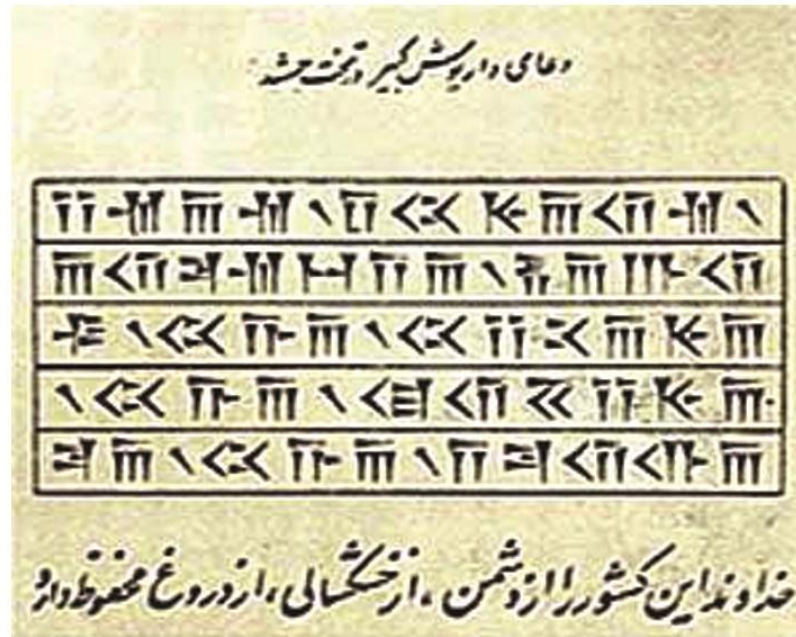 دعای داریوش کبیر در تخت جمشید
𐎡𐎶𐎠𐎶𐏐𐎭𐏃𐎹𐎠𐎢𐎶𐏐
𐎠𐎢𐎼𐎶𐏀𐎭𐎠𐏐𐎱𐎠𐎬𐎢
𐎺𐏐𐏃𐎨𐎠𐏐𐏃𐎡𐎴𐎠𐎹𐎠
𐏐𐏃𐎨𐎠𐏐𐎯𐎢𐏁𐎡𐎹𐎠
𐎼𐎠𐏐𐏃𐎨𐎠𐏐𐎭𐎼𐎢𐎥𐎠
خداوند این کشور را از دشمن ، از خشکسالی ، از دروغ محفوظ دارد